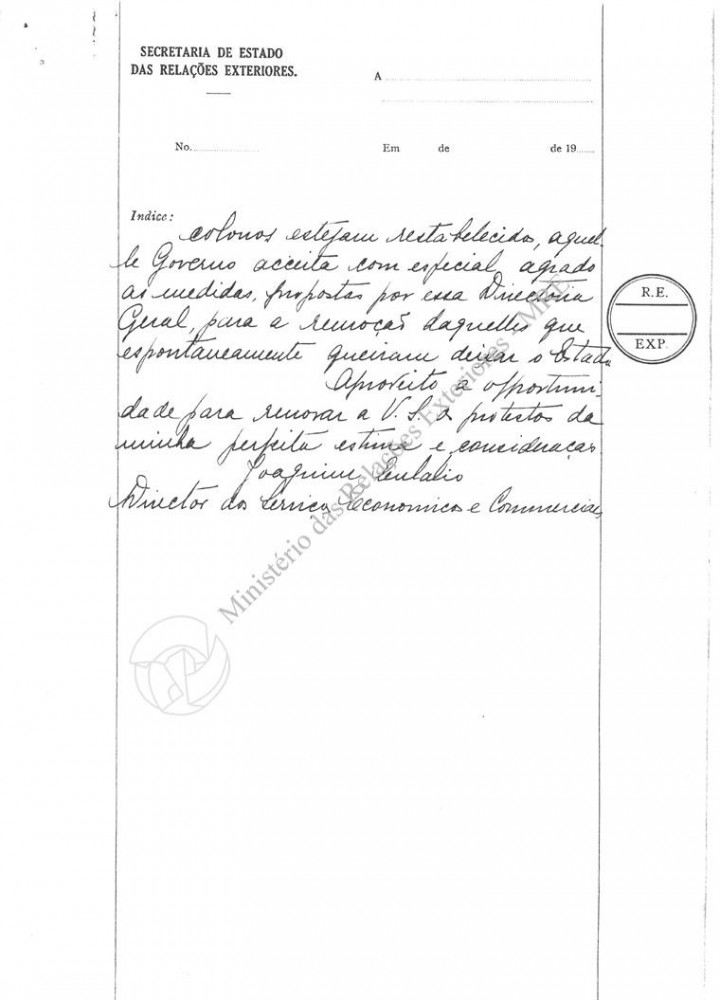 SECRETARIA DE ESTADO
DAS RELAÇÕES EXTERIORES.
A
No.
Em de de 19
Indice:
colonos estejam restabelecidos, aquel-
le Governo acceita com especial agrado
as medidas, propostas por essa Directoria
Geral, para a remoção daquelles que
espontaneamente queiram deixar o Estado.
Aproveito a opportuni-
dade para renovar a V. S. os protestos da
minha perfeita estima e consideração.
Joaquim Eulalio
Director dos Serviços Economicos e Commerciaes
R.E.
EXP.
Ministério das Relações Exteriores - MRE